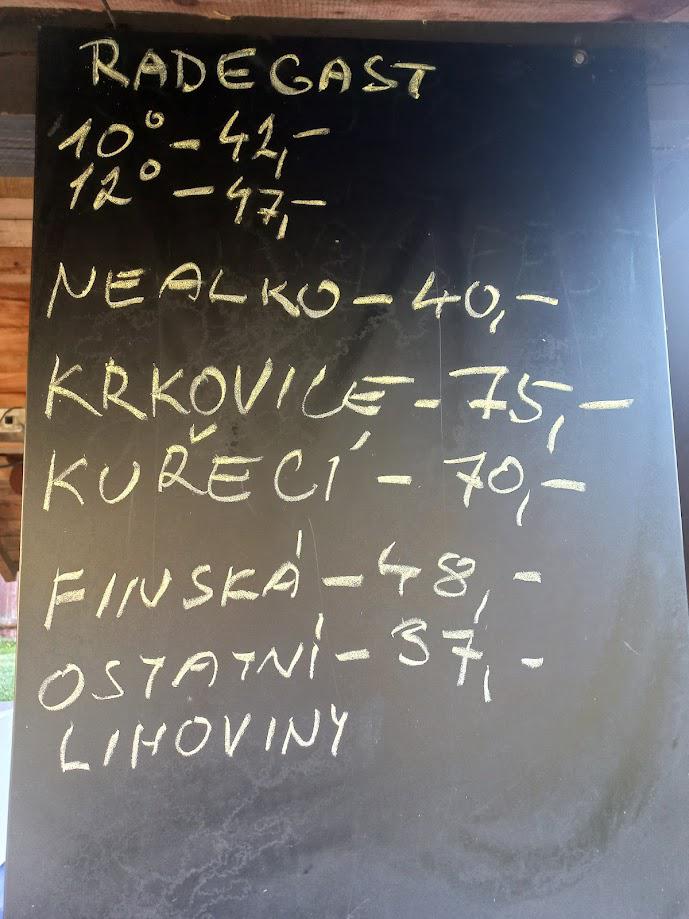 RADEGAST
10° - 42,-
12° - 47,-
NEALKO - 40,-
KRKOVICE - 75,-
KUŘECÍ - 70,-
FINSKÁ - 48,-
OSTATNÍ - 37,-
LIHOVINY